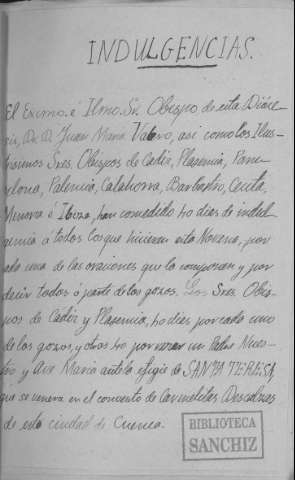 INDULGENCIAS.
El Excmo. é Ilmo. Sr. Obispo de esta Dióce-
sis, Dr. D. Juan María Valero, así como los Ilus-
trísimos Sres. Obispos de Cadiz, Plasencia, Pam-
plona, Palencia, Calahorra, Barbastro, Ceuta,
Menorca é Ibiza, han concedido 40 dias de indul-
gencia á todos los que hicieren esta Novena, por
cada una de las oraciones que la componen y por
decir todos ó parte de los gozos. Los Sres. Obis-
pos de Cadiz y Plasencia, 40 dias por cada uno
de los gozos, y otros 40 por rezar un Padre Nues-
tro y Ave María ante la efigie de SANTA TERESA,
que se venera en el convento de Carmelitas Descalzas
de esta ciudad de Cuenca.
BIBLIOTECA
SANCHIZ